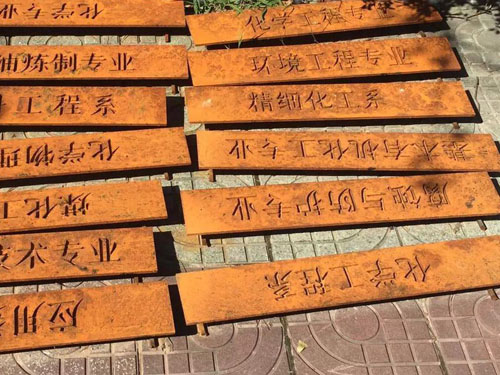 化学专业
炼制专业
工程系
化学物理
煤化工
专业
应用
专业
环境工程专业
精细化工系
基本有机化工专业
腐蚀与防护专业
化学工程系